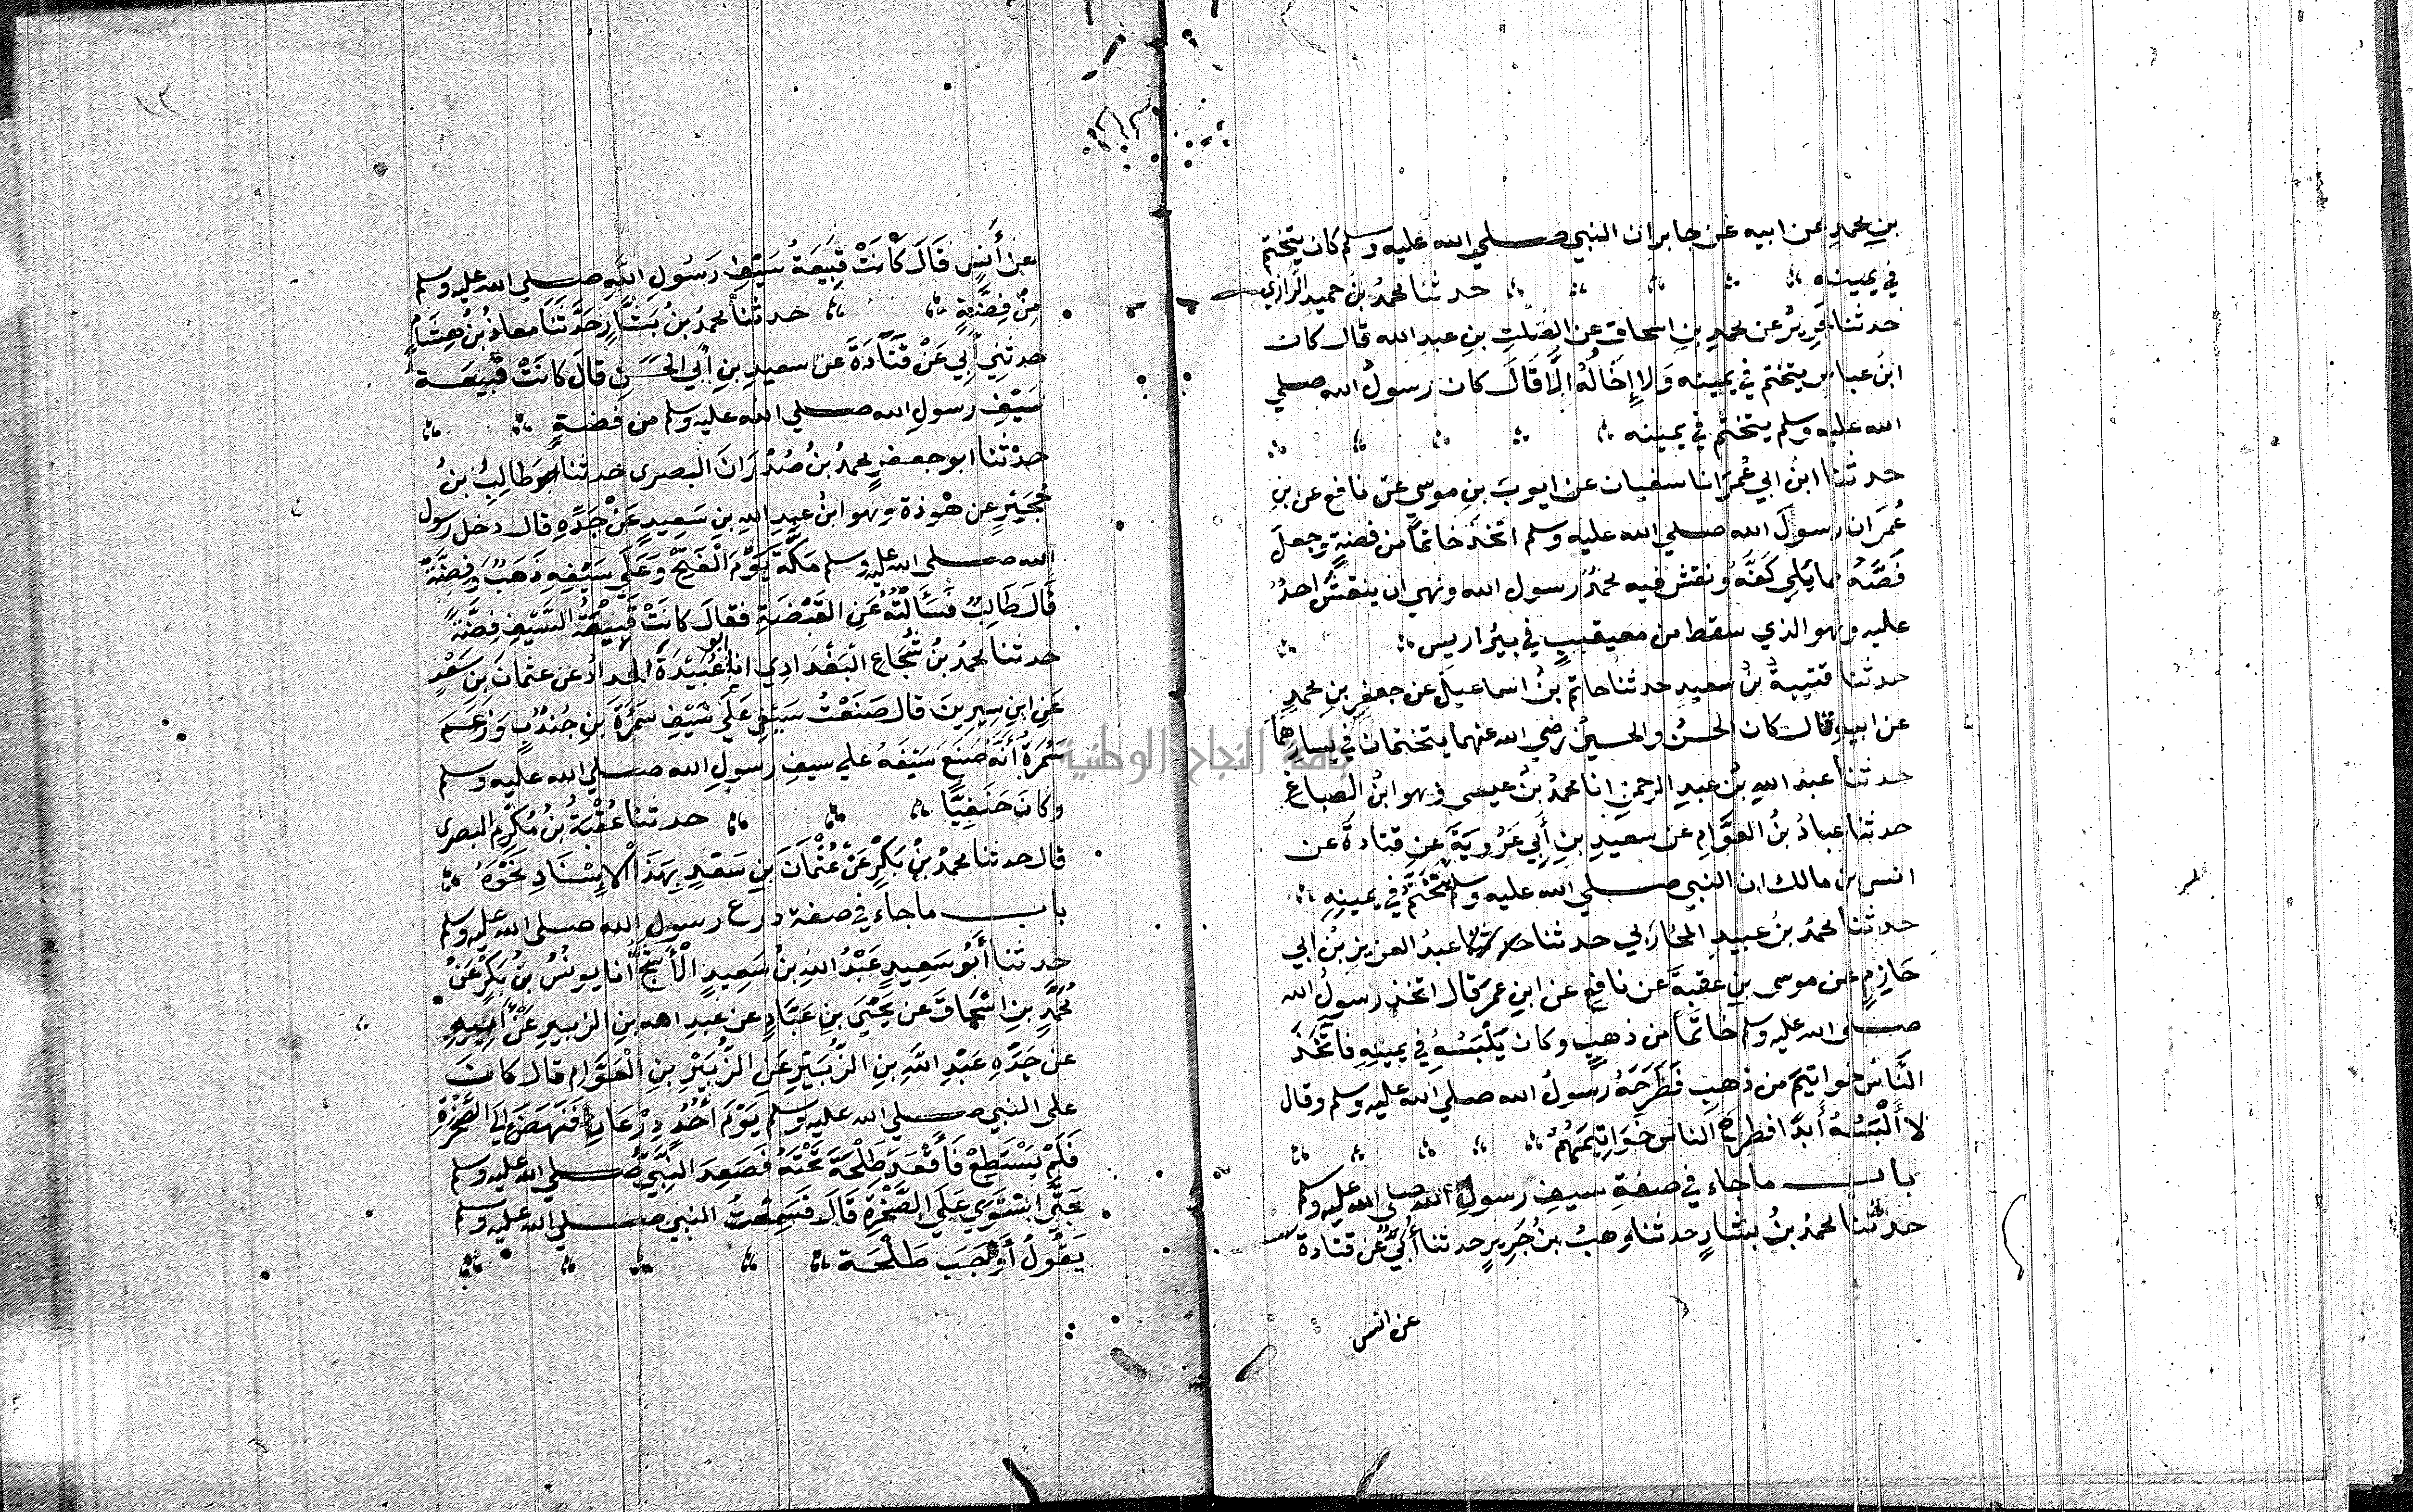 بنِ محمدٍ عن ابيه عن جابر ان النبي صلي الله عليه وسلم كان يتختم
في يمينه حدثنا محمدُ بن حميدِ الرازي
حدثنا جَرِيرُ عن محمدِ بنِ اسحاق عن الصَلتِ بنِ عبدِ الله قال كان
ابنُ عباسٍ يتختم في يمينه وَلا إِخَالُهُ إِلَّا قَالَ كان رسولُ الله صلي
الله عليه وسلم يتختم في يمينه
حدثنا ابنُ ابي عُمرَ انا سفيان عن ايوبَ بنِ موسي عن نافع عن بنِ
عُمرَ ان رسولَ الله صلي الله عليه وسلم اتخذ خاتماً من فضةٍ وجعلَ
فَصَّهُ مما يَلِي كَفَّهُ ونقش فيه محمدٌ رسول الله ونهي ان ينقش احدٌ
عليه وهو الذي سقط من معيقيبٍ في بئر اريس
حدثنا قتيبةُ بنُ سعيدٍ حدثنا حاتم بنُ اسماعيلَ عن جعفر بنِ محمدٍ
عن ابيه قال كان الحسنُ والحسينُ رضي الله عنهما يتختمان في يسارهما
حدثنا عبدُ اللهِ بنُ عبدِ الرحمنِ انا محمدُ بنُ عيسى وهو ابنُ الصباغ
حدثنا عبادُ بنُ العوَّامِ عن سعيدِ بنِ أَبِي عَرُوبَةَ عَنِ قتادةَ عن
انس بن مالك ان النبي صلي الله عليه وسلم تختم في يمينِهِ
حدثنا محمدُ بنُ عبيدٍ المحاربي حدثنا عبدُ العزيزِ بنُ ابي
حَازِمٍ عن موسى بنِ عقبةَ عن نافعٍ عن ابنِ عمرَ قال اتخذ رسولُ الله
صلى الله عليه وسلم خاتما من ذهبٍ وكان يَلْبَسُهُ في يمينِهِ فاتَّخَذَ
النَّاسُ خواتيمَ من ذهبٍ فَطَرَحَهُ رسولُ الله صلي الله عليه وسلم وقال
لا أَلْبَسُهُ أَبدًا فطرح الناس خَوَاتِيمَهُمْ
باب ما جاء في صفةِ سيفِ رسولِ الله صلى الله عليه وسلم
حدثنا محمدُ بنُ بشارٍ حدثنا وهبُ بنُ جَرِيرٍ حدثنا أَبِي عن قتادة
عن انس
عن أَنسٍ قَالَ كَانَتْ قَبِيعَةُ سَيْفِ رَسُولِ اللَّهِ صلي الله عليه وسلم
مِنْ فِضَّةٍ حدثنا محمدُ بنُ بَشَّارٍ حَدَّثَنَا معاذُ بنُ هِشَامٍ
حدثنِي أَبِي عَنْ قَتَادَةَ عن سعيدِ بنِ أَبي الحَسَنِ قالَ كانَتْ قَبِيعَة
سَيْفِ رسولِ الله صلي الله عليه وسلم من فضةٍ
حدثنا ابو جعفرٍ محمدُ بنُ صُدْرَانَ البصرى حدثنا طَالِبُ بنُ
حُجَيْرٍ عن هُوذة وهو ابنُ عبدِ اللهِ بنِ سَعِيدٍ عَنْ جَدِّهِ قال دخل رسول
الله صلى الله عليه وسلم مَكَّةَ يَوْمَ الْفَتْحِ وَعَلَى سَيْفِهِ ذَهَبٌ وَفِضَّةٌ
قَالَ طَالِبٌ فَسَأَلْتُهُ عَنِ الفِضَّةِ فقالَ كانَتْ قَبِيعَةُ السَّيْفِ فِضَّةً
حدثنا محمدُ بنُ شُجَاعِ البَغْدَادِي انا ابو عُبَيْدَةَ الحدادُ عن عثمانَ بنِ سَعْدٍ
عَنِ ابنِ سِيرِينَ قال صَنَعْتُ سَيْفِي عَلَي سَيْفِ سَمُرَةَ بنِ جُندُبٍ وَزَعَمَ
سَمُرَةُ أَنَّهُ صَنَعَ سَيْفَهُ علي سيفِ رسولِ الله صلي الله عليه وسلم
وكانَ حَنَفِيًّا حدثنا عُقْبَةُ بنُ مُكْرَمٍ البصرى
قال حدثنا محمدُ بنُ بَكْرٍ عَنْ عُثْمَانَ بنِ سَعْدٍ بِهَذَا الإِسْنَادِ نَحْوَهُ
باب ما جاء في صفة درع رسول الله صلى الله عليه وسلم
حدثنا أَبُو سَعِيدٍ عَبْدُ اللهِ بنُ سَعِيدٍ الْأَشَجُّ أَنا يونُسُ بنُ بُكَيْرٍ عَنْ
مُحَمَّدِ بنِ اسْحَاقَ عن يَحْيَى بنِ عَبَّادِ عن عبد الله بنِ الزبيرِ عَنْ أَبِيهِ
عن جَدِّهِ عَبْدِ اللَّهِ بنِ الزُّبَيْرِ عَنِ الزُّبَيْرِ بنِ الْعَوَّامِ قال كانَ
على النبي صلي الله عليه وسلم يَوْمَ أُحُدٍ دِرْعَانِ فَنَهَضَ إِلَى الصَّخْرَةِ
فَلَمْ يَسْتَطِعْ فَأَقْعَدَ طَلْحَةَ تَحْتَهُ فَصَعِدَ النَّبِيُّ صلي الله عليه وسلم
حَتَّى اسْتَوَي عَلَي الصَّخْرَةِ قَالَ فَسَمِعْتُ النبي صلي الله عليه وسلم
يَقُولُ أَوْجَبَ طَلْحَة